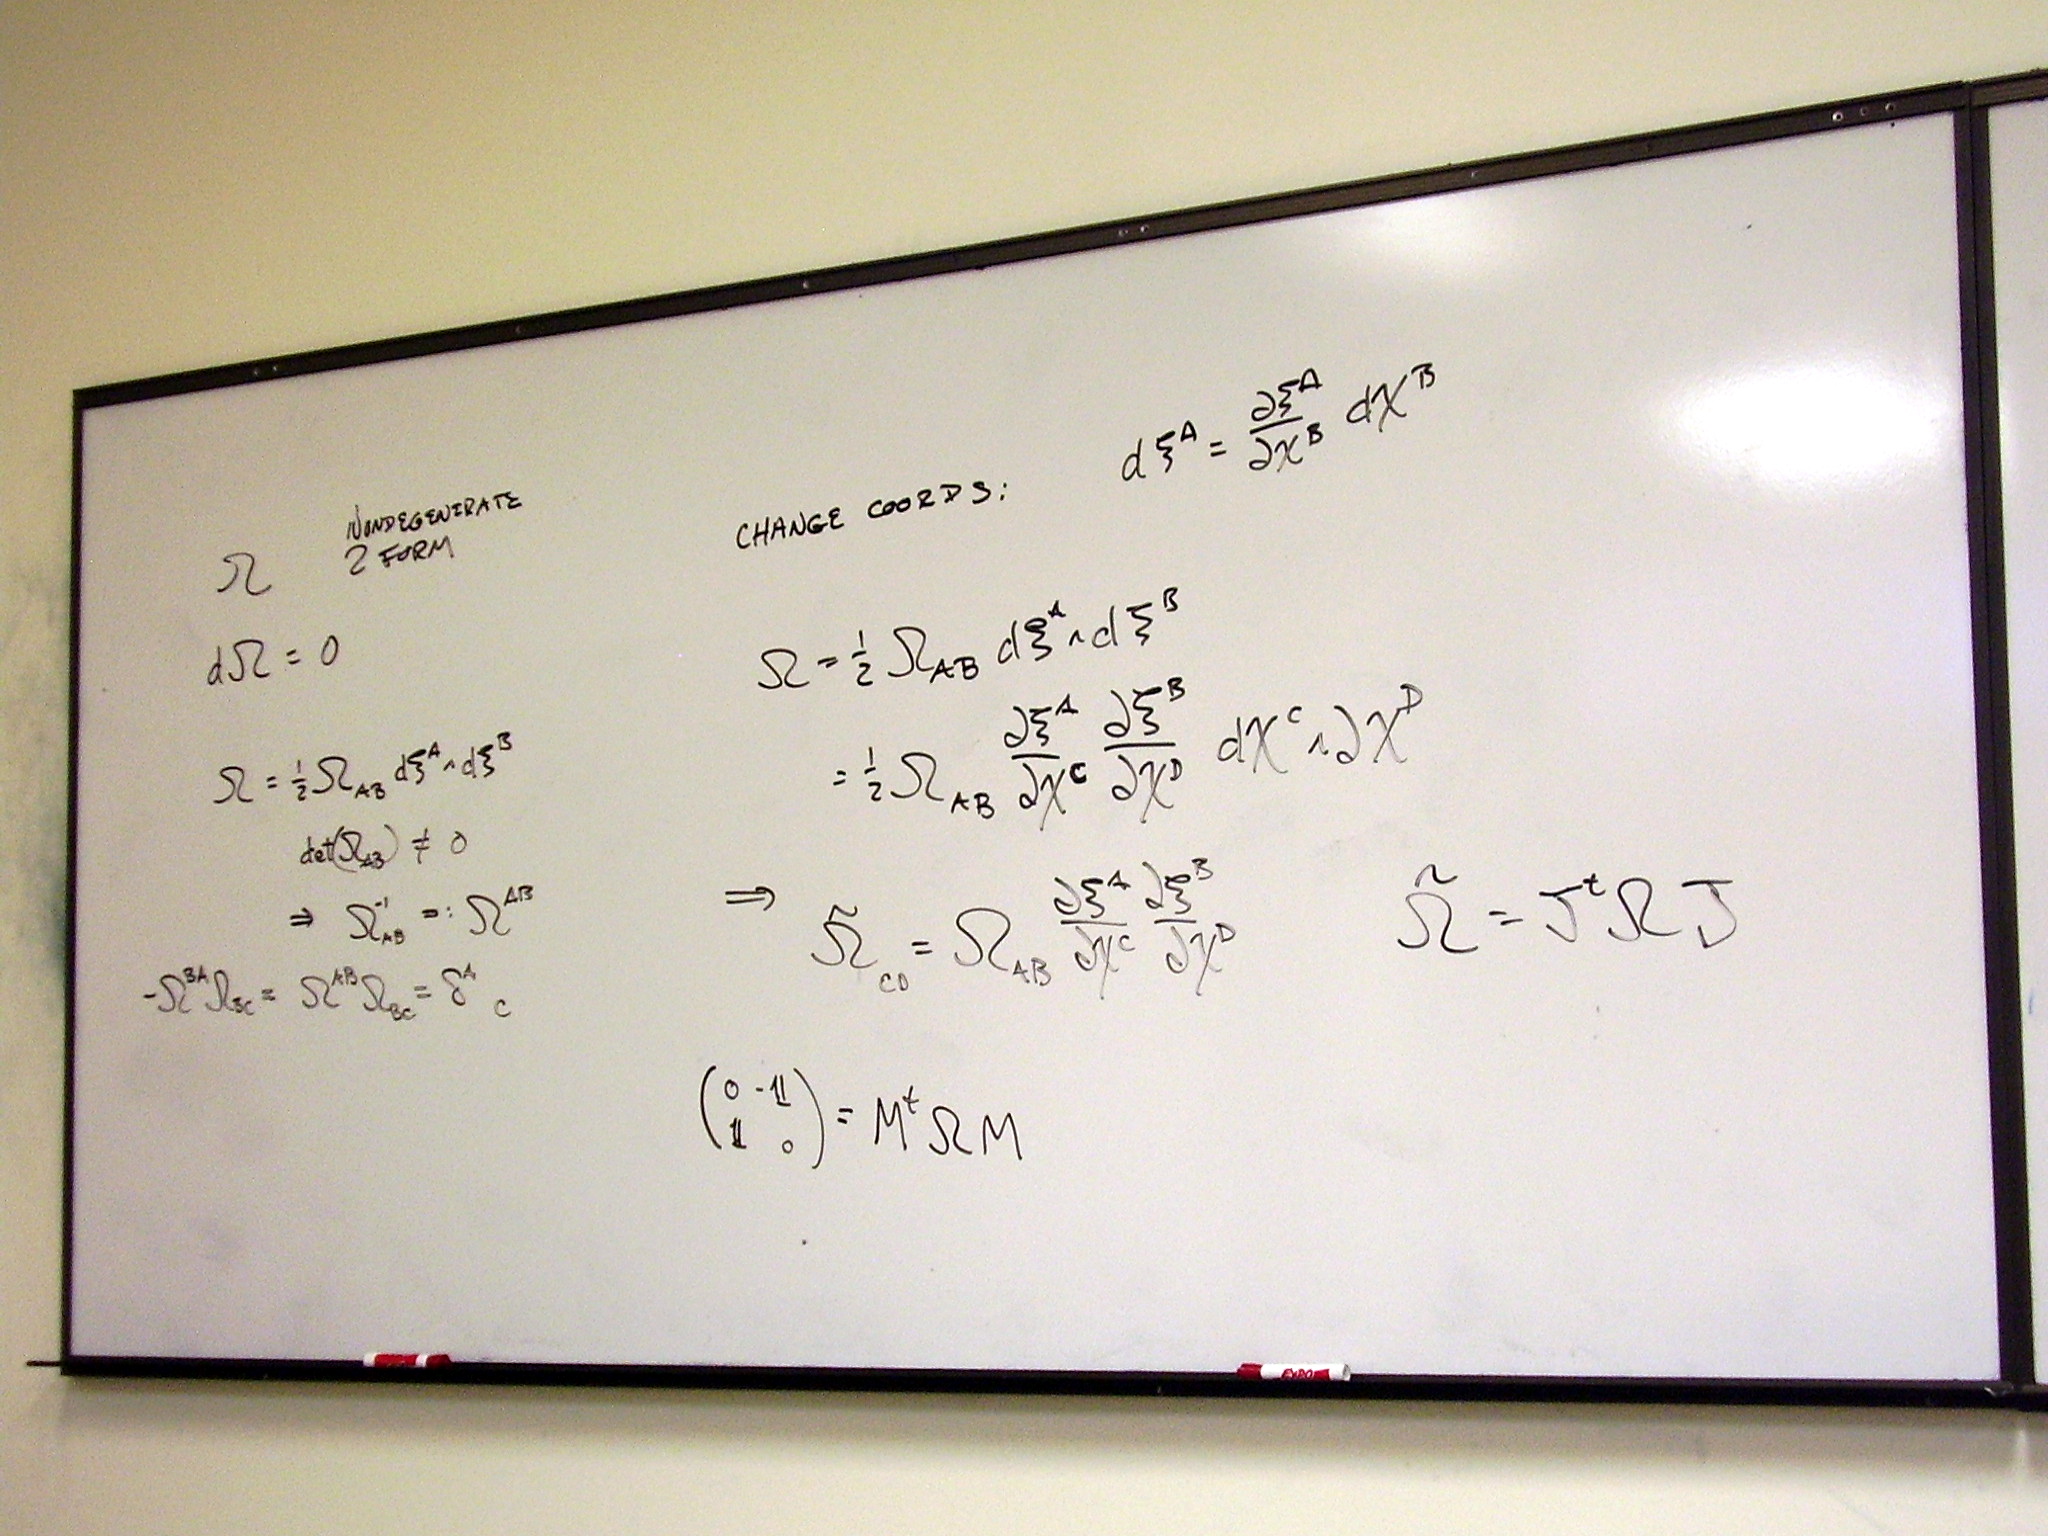 Ω NONDEGENERATE
2 FORM
dΩ = 0
Ω = ½ Ω_AB dξ^A ∧ dξ^B
det(Ω_AB) ≠ 0
⇒ Ω^-1_AB =: Ω^AB
-Ω^BA Ω_BC = Ω^AB Ω_BC = δ^A_C
CHANGE COORDS: dξ^A = ∂ξ^A/∂χ^B dχ^B
Ω = ½ Ω_AB dξ^A ∧ dξ^B
= ½ Ω_AB ∂ξ^A/∂χ^C ∂ξ^B/∂χ^D dχ^C ∧ ∂χ^D
⇒ Ω̃_CD = Ω_AB ∂ξ^A/∂χ^C ∂ξ^B/∂χ^D Ω̃ = J^t Ω J
(0 -𝟙
𝟙 0) = M^t Ω M
EXPO